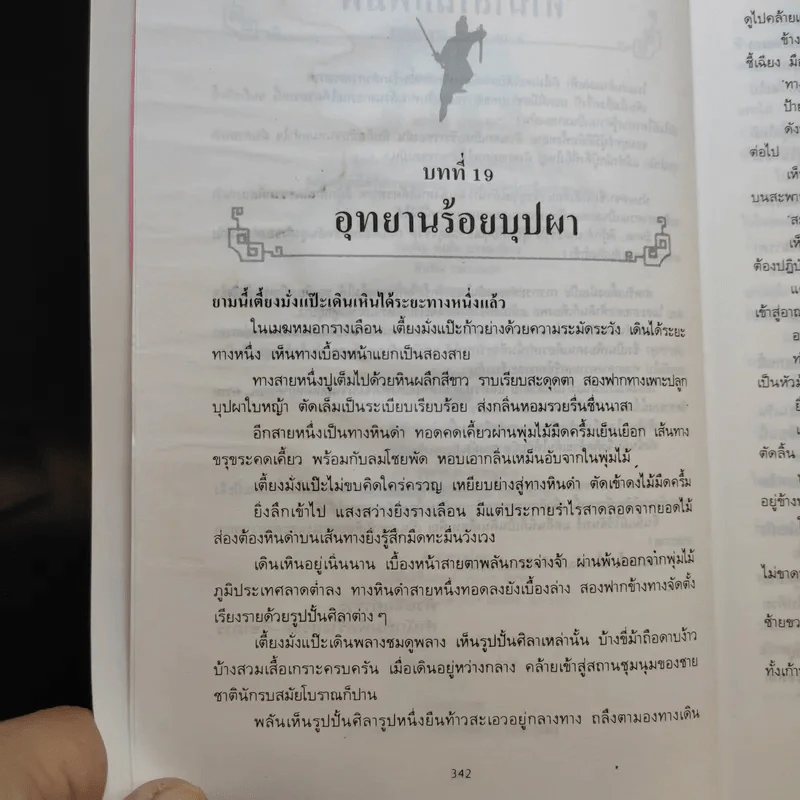 บทที่ 19
อุทยานร้อยบุปผา
ยามนี้เตี้ยงมั่งแป๊ะเดินเหินได้ระยะทางหนึ่งแล้ว
ในเมฆหมอกรางเลือน เตี้ยงมั่งแป๊ะก้าวย่างด้วยความระมัดระวัง เดินได้ระยะ
ทางหนึ่ง เห็นทางเบื้องหน้าแยกเป็นสองสาย
ทางสายหนึ่งปูเต็มไปด้วยหินผลึกสีขาว ราบเรียบสะดุดตา สองฟากทางเพาะปลูก
บุปผาใบหญ้า ตัดเล็มเป็นระเบียบเรียบร้อย ส่งกลิ่นหอมรวยรื่นชื่นนาสา
อีกสายหนึ่งเป็นทางหินดำ ทอดคดเคี้ยวผ่านพุ่มไม้มืดครึ้มเย็นเยือก เส้นทาง
ขรุขระคดเคี้ยว พร้อมกับลมโชยพัด หอบเอากลิ่นเหม็นอับจากในพุ่มไม้
เตี้ยงมั่งแป๊ะไม่ขบคิดใคร่ครวญ เหยียบย่างสู่ทางหินดำ ตัดเข้าดงไม้มืดครึ้ม
ยิ่งลึกเข้าไป แสงสว่างยิ่งรางเลือน มีแต่ประกายรำไรสาดลอดจากยอดไม้
ส่องต้องหินดำบนเส้นทางยิ่งรู้สึกมืดทะมื่นวังเวง
เดินเหินอยู่เนิ่นนาน เบื้องหน้าสายตาพลันกระจ่างจ้า ผ่านพ้นออกจากพุ่มไม้
ภูมิประเทศลาดต่ำลง ทางหินดำสายหนึ่งทอดลงยังเบื้องล่าง สองฟากข้างทางจัดตั้ง
เรียงรายด้วยรูปปั้นศิลาต่าง ๆ
เตี้ยงมั่งแป๊ะเดินพลางชมดูพลาง เห็นรูปปั้นศิลาเหล่านั้น บ้างขี่ม้าถือดาบง้าว
บ้างสวมเสื้อเกราะครบครัน เมื่อเดินอยู่หว่างกลาง คล้ายเข้าสู่สถานชุมนุมของชาย
ชาตินักรบสมัยโบราณก็ปาน
พลันเห็นรูปปั้นศิลารูปหนึ่งยืนท้าวสะเอวอยู่กลางทาง ถลึงตามองทางเดิน
342
ดูไปคล้าย
ช้าง
ชี้เฉียง
ต่อไป
ต้องปฏิบั
เป็นหัว
ตัดลิ้น
อยู่ข้าง
ไม่ขาด
ทั้งเก้า